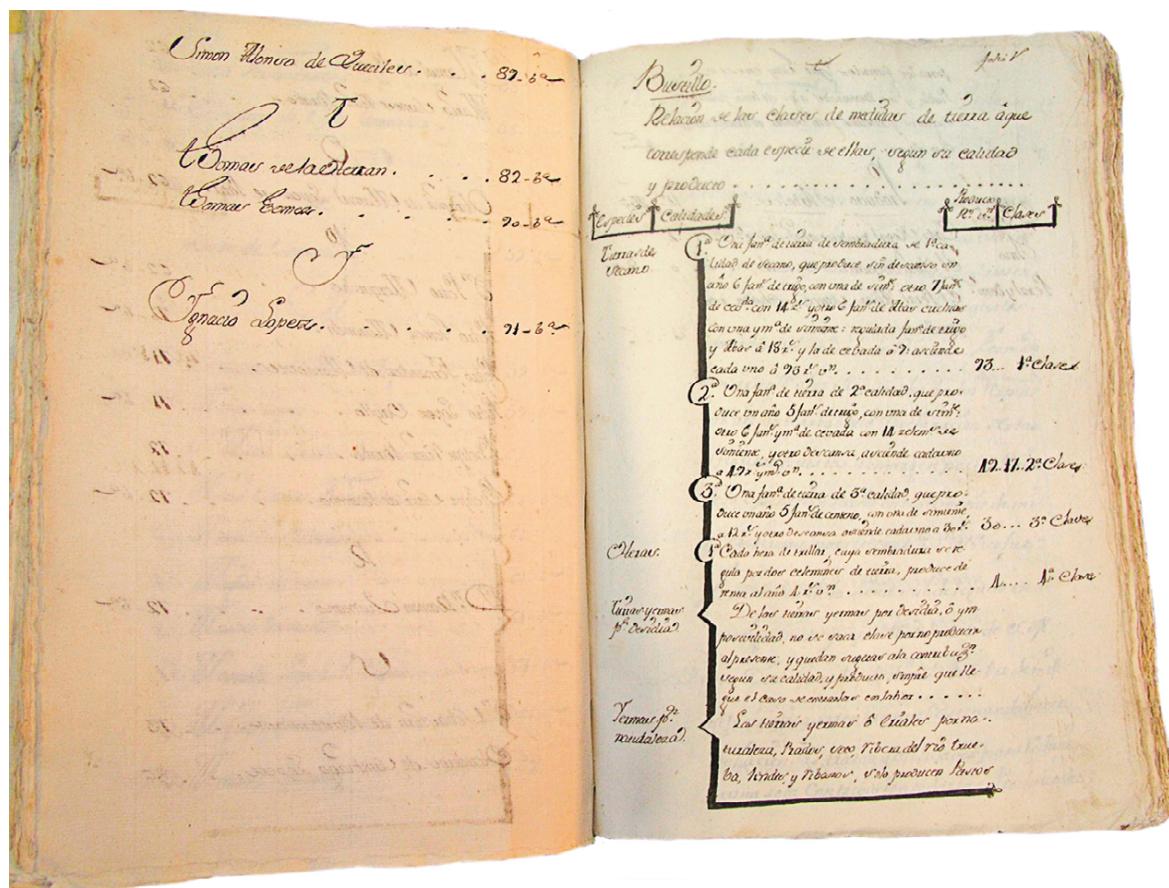 Simon Alonso de . . . . 82-6ª
T
Thomas de la . . . . 82-6ª
Thomas Gomez . . . . 90-6ª
Y
Ygnacio Lopez . . . . . 91-6ª
Bustillo.
Relacion de las clases de medidas de tierra à que
corresponde cada especie de ellas, segun su calidad
y producto . . . . . . . . . . . . .
Especies Calidades Producto
Rˢ vⁿ Clases
Tierras de
secano
1ª Una fanª de tierra de sembradura de 1ª ca-
lidad de secano, que produce sin descanso un
año 6 fanˢ de trigo, con una de simᵗᵉ; otro 7 fanˢ
de cevᵈᵃ con 14 zˢ y otro 6 fanˢ de Abas cuchas
con una y mª de simiente: regulada fanª de trigo
y Abas à 18 rˢ y la de cebada à 9: asciende
cada uno à 93 rˢ vⁿ. . . . . . . . 93... 1ª Clase
2ª Una fanª de tierra de 2ª calidad, que pro-
duce un año 5 fanˢ de trigo, con una de simᵗᵉ;
otro 6 fanˢ y mª de cevada con 14 zelemˢ de
simiente, y otro descansa, asciende cada uno
a 49 rˢ y mº vⁿ. . . . . . . . . 49..17.. 2ª Clase
3ª Una fanª de tierra de 3ª calidad, que pro-
duce un año 5 fanˢ de centeno, con una de simiente,
a 12 rˢ y otro descansa asciende cada uno a 30 rˢ. 30... 3ª Clase
Heras.
1ª Cada hera de trillar, cuya sembradura se re-
gula por dos celemines de tierra, produce de
renta al año 4 rˢ vⁿ . . . . . . . 4.... 4ª Clase
Tierras yermas
pʳ desidia
De las tierras yermas por desidia, ò ym
posivilidad, no se saca clase por no producir
al presente, y quedan sugetas a la contribuzⁿ
segun su calidad, y producto, simpre que lle-
gue el caso de entrarlas en labor . . . . . .
Yermas pʳ
naturaleza
Las tierras yermas ò Eriales por na-
turaleza, Prados, soto Ribera del rio True-
ba, lindes y Ribazos, solo producen Pastos